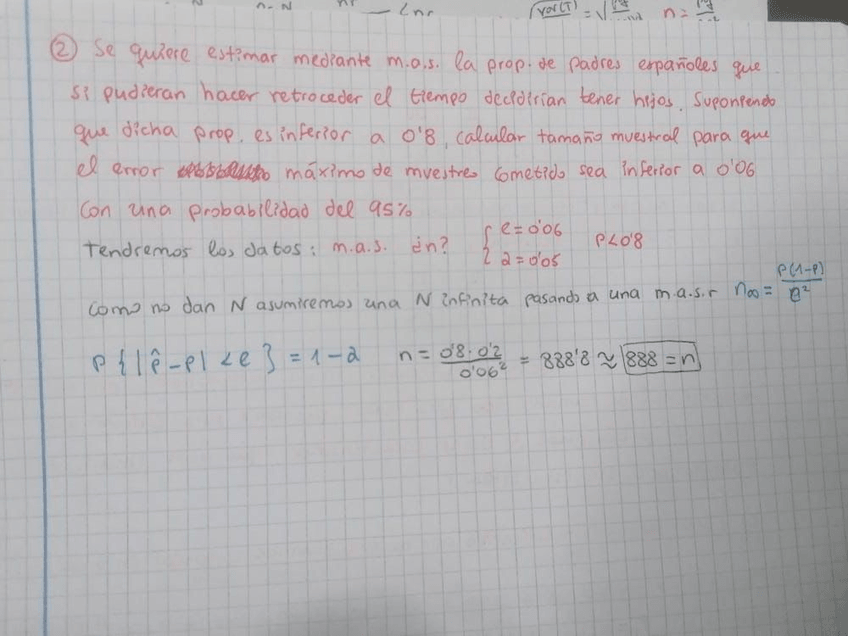 ② Se quiere estimar mediante m.a.s. la prop. de padres españoles que
si pudieran hacer retroceder el tiempo decidirían tener hijos. Suponiendo
que dicha prop. es inferior a 0'8, calcular tamaño muestral para que
el error máximo de muestreo cometido sea inferior a 0'06
con una probabilidad del 95%
Tendremos los datos: m.a.s. ¿n? { e=0'06 α=0'05 P<0'8
Como no dan N asumiremos una N infinita pasando a una m.a.s.r n∞ = P(1-P)/e²
P{|p̂-p|<e} = 1-α n = 0'8·0'2/0'06² = 888'8 ≈ 888=n